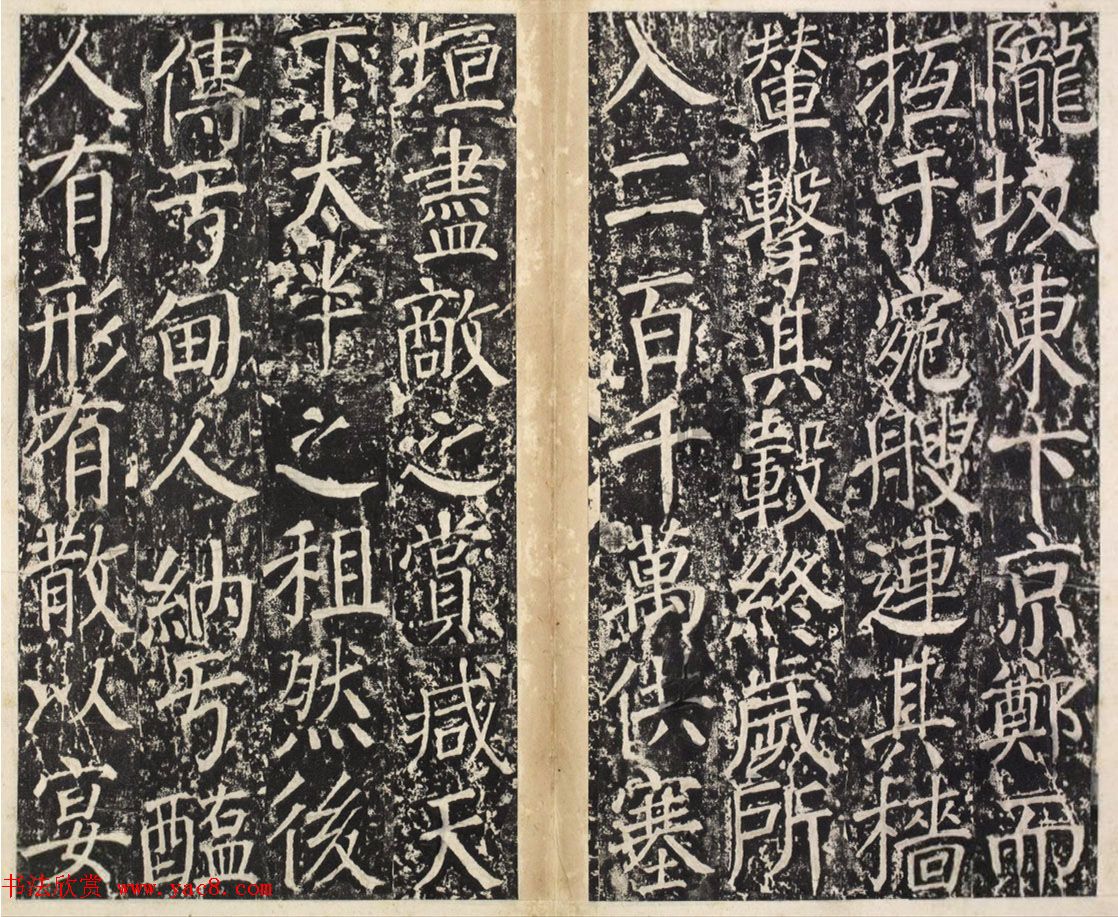 隴坂東下京鄭而
抵于宛艘連其檣
輦擊其轂終歲所
入二百千萬供塞
垣盡敵之賞減天
下太半之租然後
傳于甸人納于醞
人有形有散以宴
书法欣赏 www.yac8.com